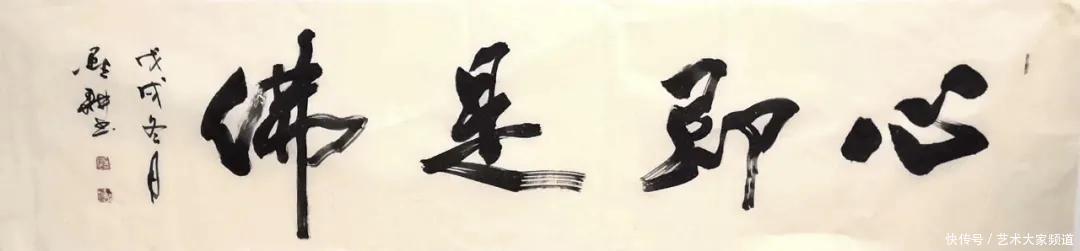 心即是佛
戊戌冬月
快传号/艺术大家频道